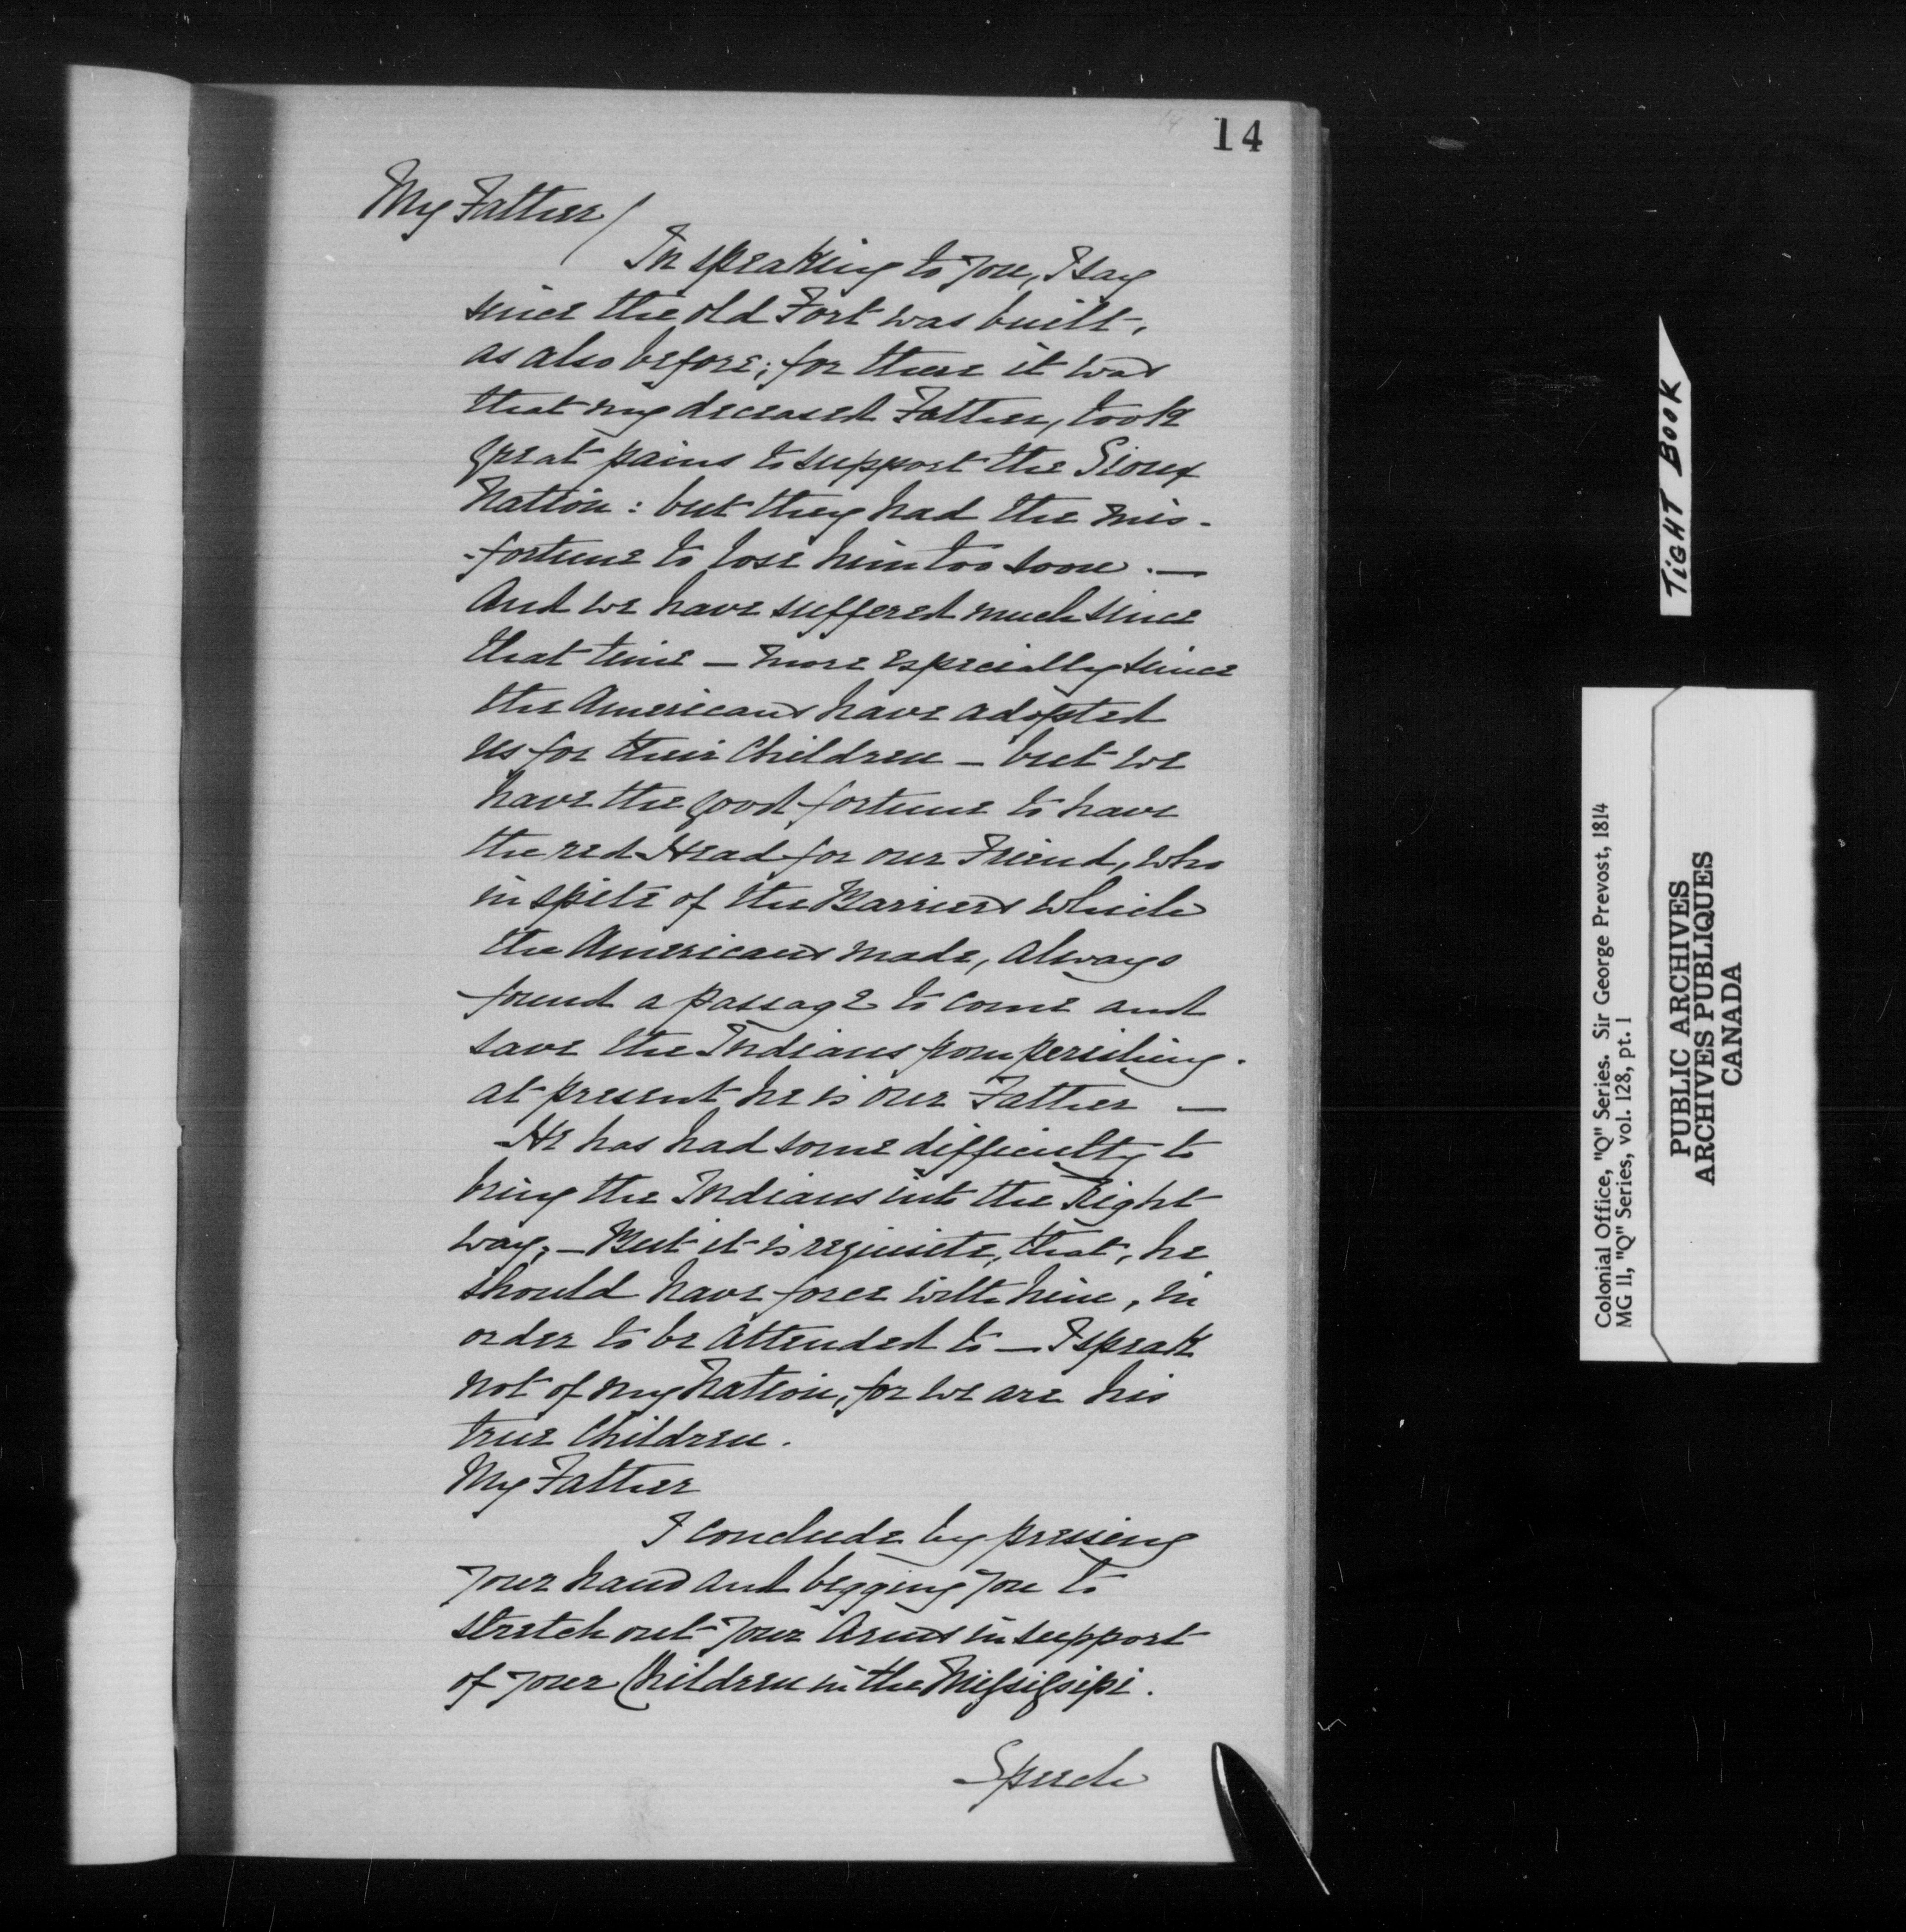 14
My Father/
In speaking to you, I say
since the old Fort was built,
as also before; for there it was
that my deceased Father, took
great pains to support the Sioux
Nation: but they had the mis-
-fortune to lose him too soon. —
And we have suffered much since
that time — more especially since
the Americans have adopted
us for their Children — but we
have the good fortune to have
the red Head for our Friend, who
in spite of the Barriers which
the Americans made, always
found a passage to come and
save the Indians from perishing.
at present he is our Father —
He has had some difficulty to
bring the Indians into the Right
way, — But it is requisite, that, he
should have force with him, in
order to be attended to — I speak
not of my Nation, for we are his
true Children.
My Father
I conclude by pressing
your hand and begging you to
stretch out your Arms in support
of your Children in the Missisippi.
Speech
TiGHT BOOK
Colonial Office, "Q" Series. Sir George Prevost, 1814
MG 11, "Q" Series, vol. 128, pt. 1
PUBLIC ARCHIVES
ARCHIVES PUBLIQUES
CANADA